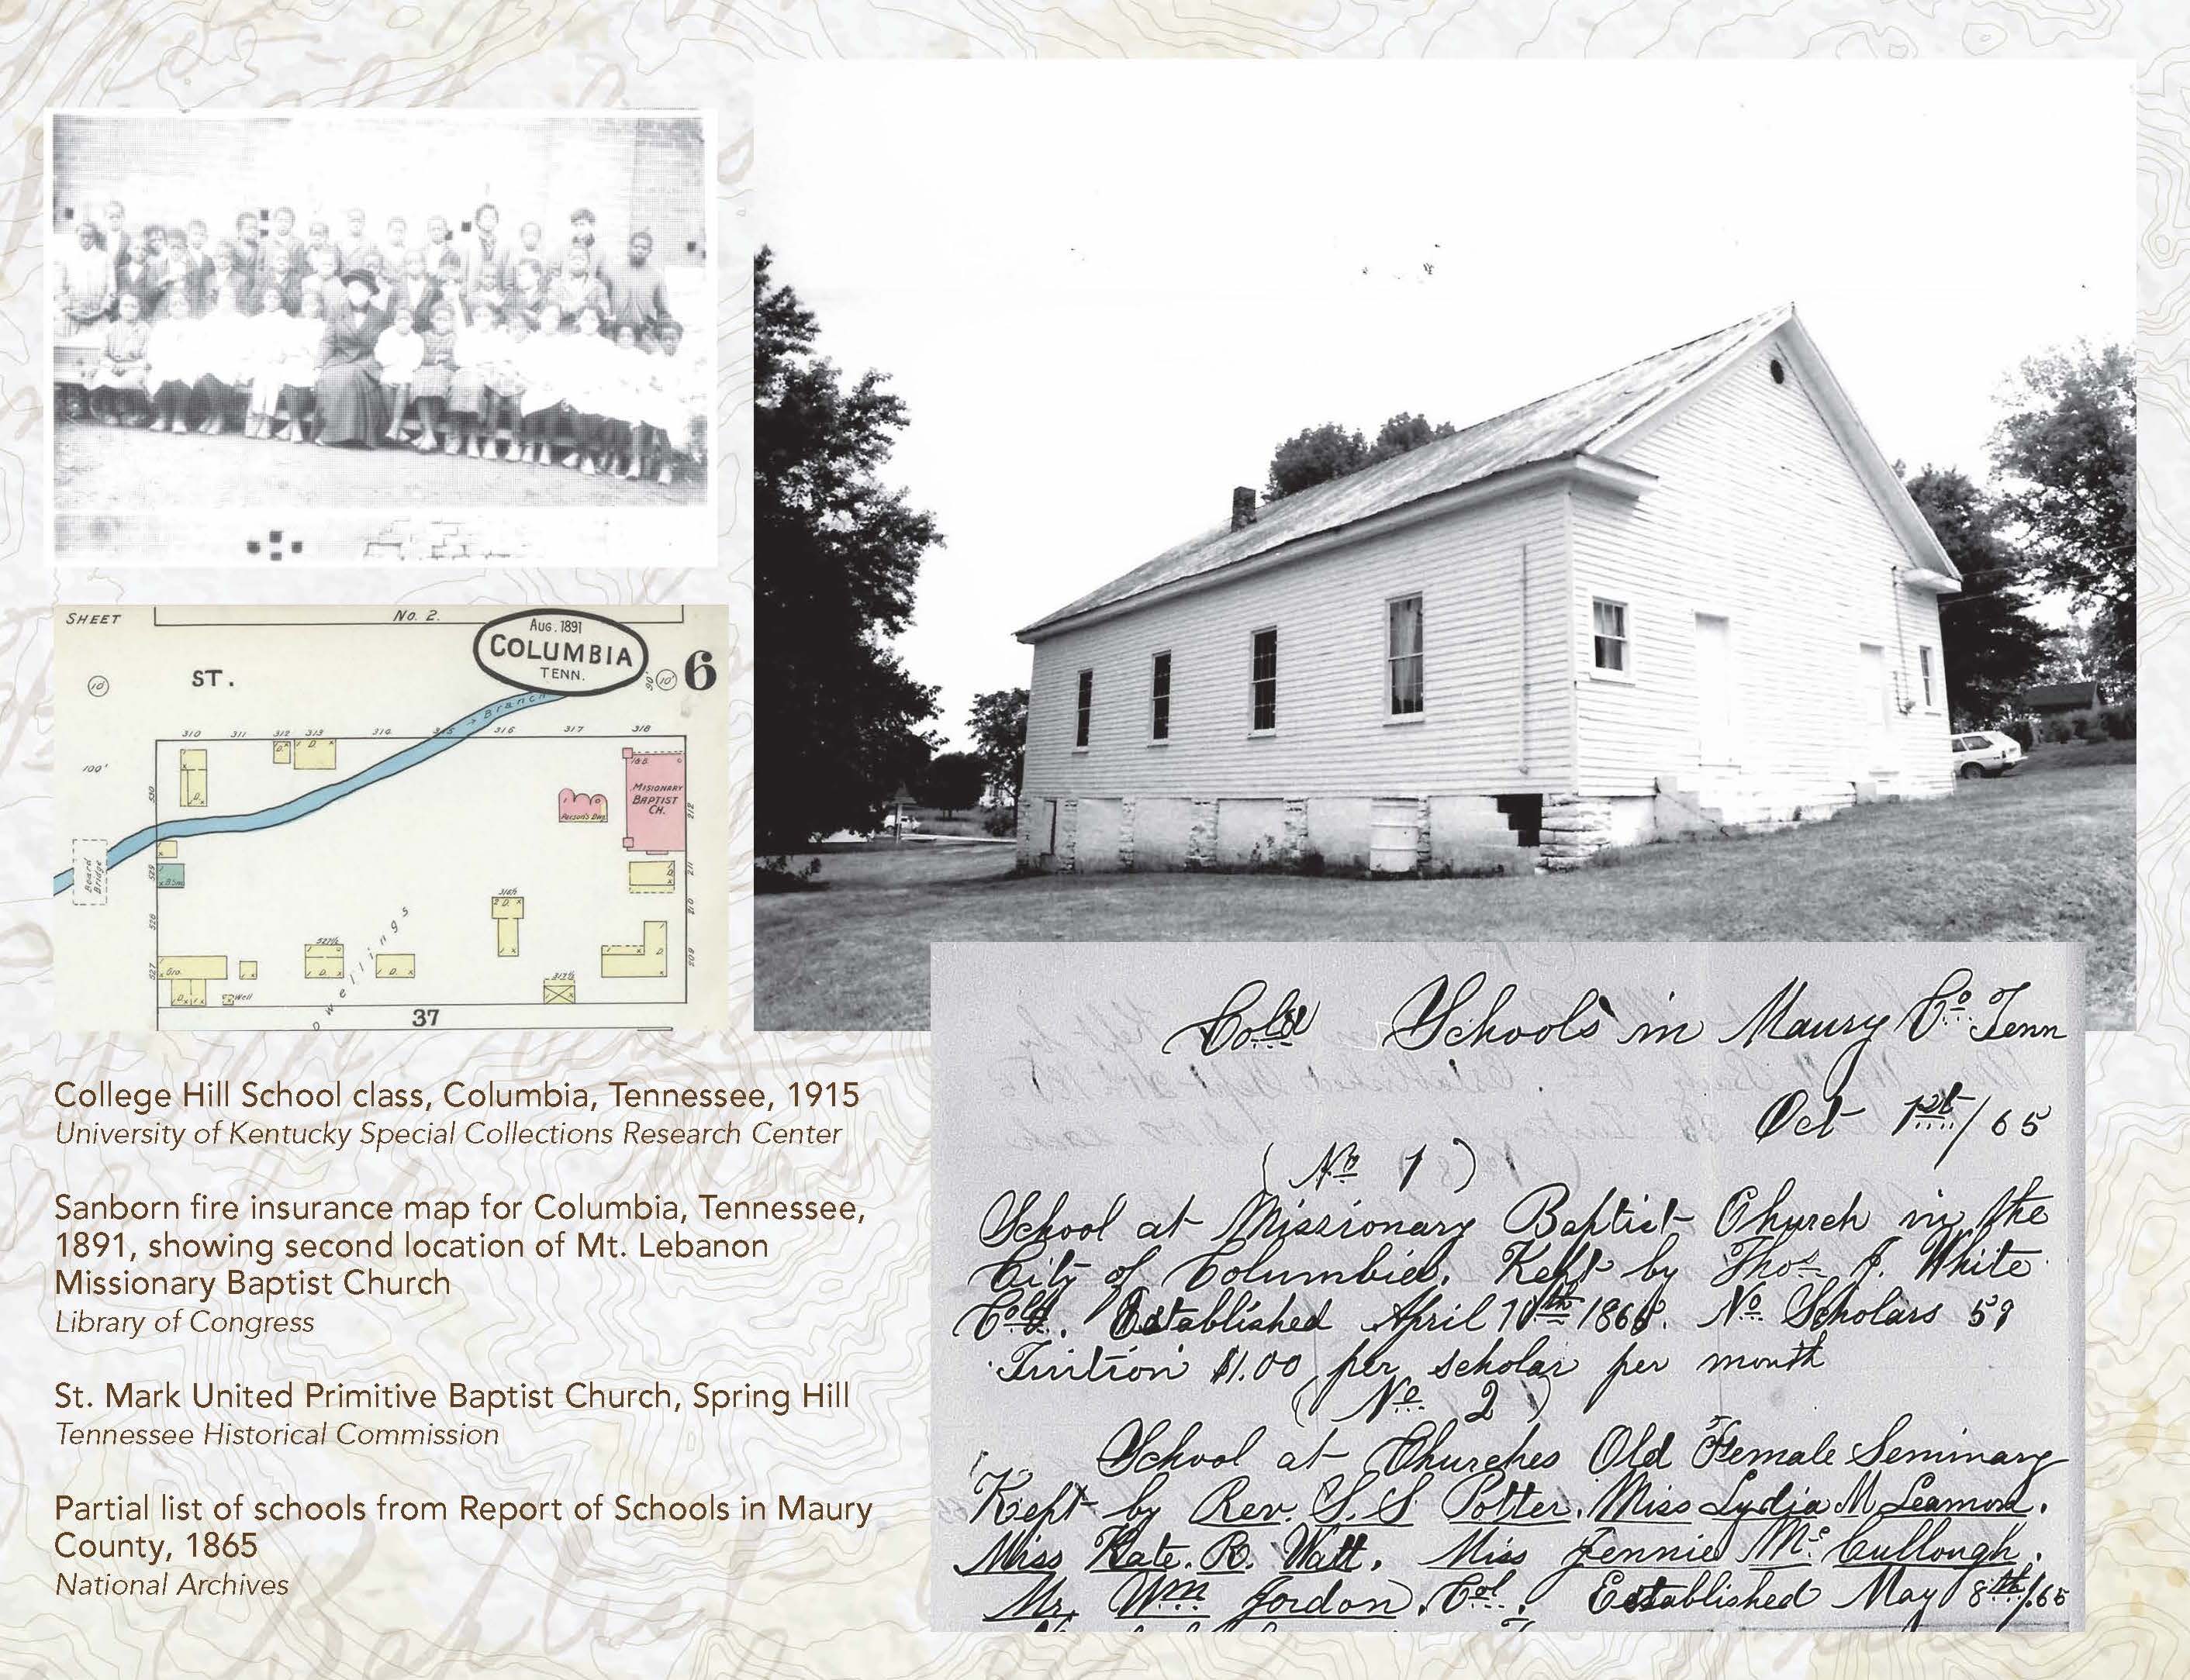 SHEET
No. 2.
Aug. 1891
COLUMBIA
TENN.
6
ST.
10
90'
10'
Branch
310 311 312 313 314 315 316 317 318
100'
530
MISIONARY
BAPTIST
CH.
Parson's Dwg.
212
Board
Bridge
529
B.Sm.
211
528
316½
2 D.
210
Dwellings
527½
527
Gro.
Well
317½
209
37
College Hill School class, Columbia, Tennessee, 1915
University of Kentucky Special Collections Research Center
Sanborn fire insurance map for Columbia, Tennessee,
1891, showing second location of Mt. Lebanon
Missionary Baptist Church
Library of Congress
St. Mark United Primitive Baptist Church, Spring Hill
Tennessee Historical Commission
Partial list of schools from Report of Schools in Maury
County, 1865
National Archives
Cold Schools in Maury Co Tenn
Oct 1st/65
(No 1)
School at Missionary Baptist Church in the
City of Columbia. Kept by Thos J. White
Cold. Established April 10th 1865. No Scholars 59
Tuition $1.00 per scholar per month
(No 2)
School at Churches Old Female Seminary
Kept by Rev. S. S Potter. Miss Lydia M Leamon.
Miss Kate. R. Watt. Miss Jennie Mc Cullough.
Mr. Wm Gordon. Col. Established May 8th/65